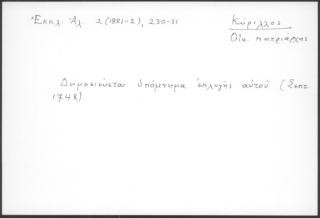 Ἐκκλ. Ἀλ. 2 (1881-2), 230-31
Κύριλλος
Οἰκ. πατριάρχης
Δημοσιεύεται ὑπόμνημα ἐκλογῆς αὐτοῦ (Σεπτ.
1748).